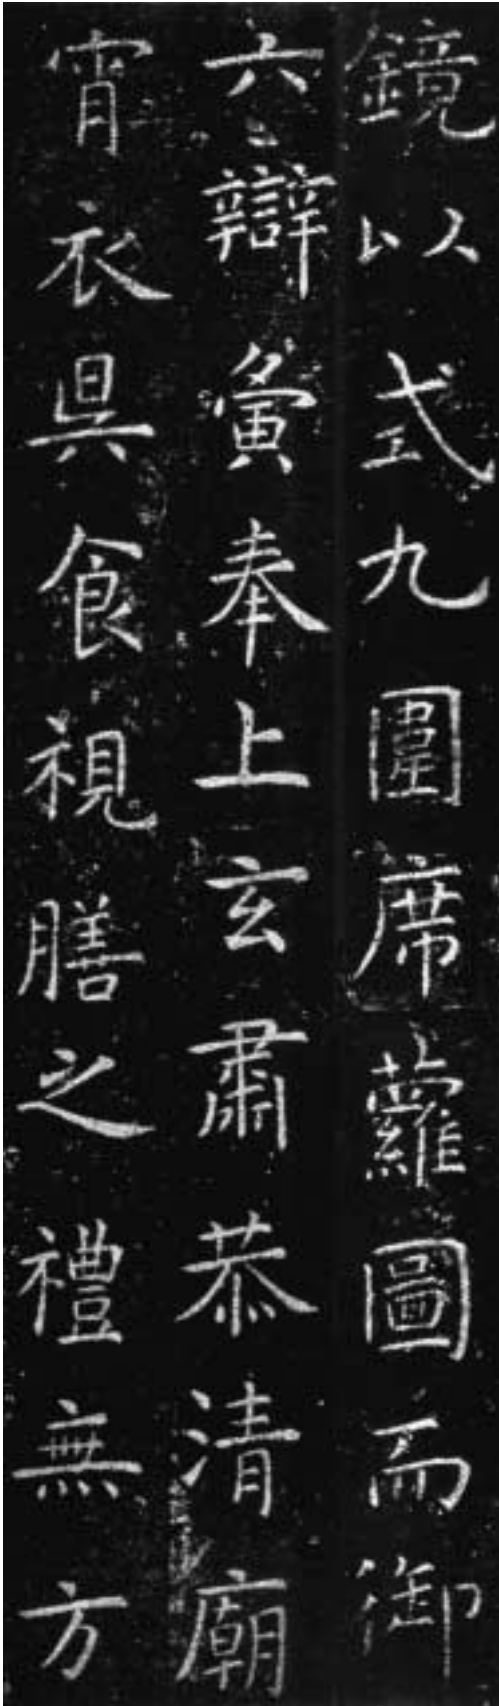 鏡以式九圍席蘿圖而御
六辯寅奉上玄肅恭清廟
宵衣具食視膳之禮無方